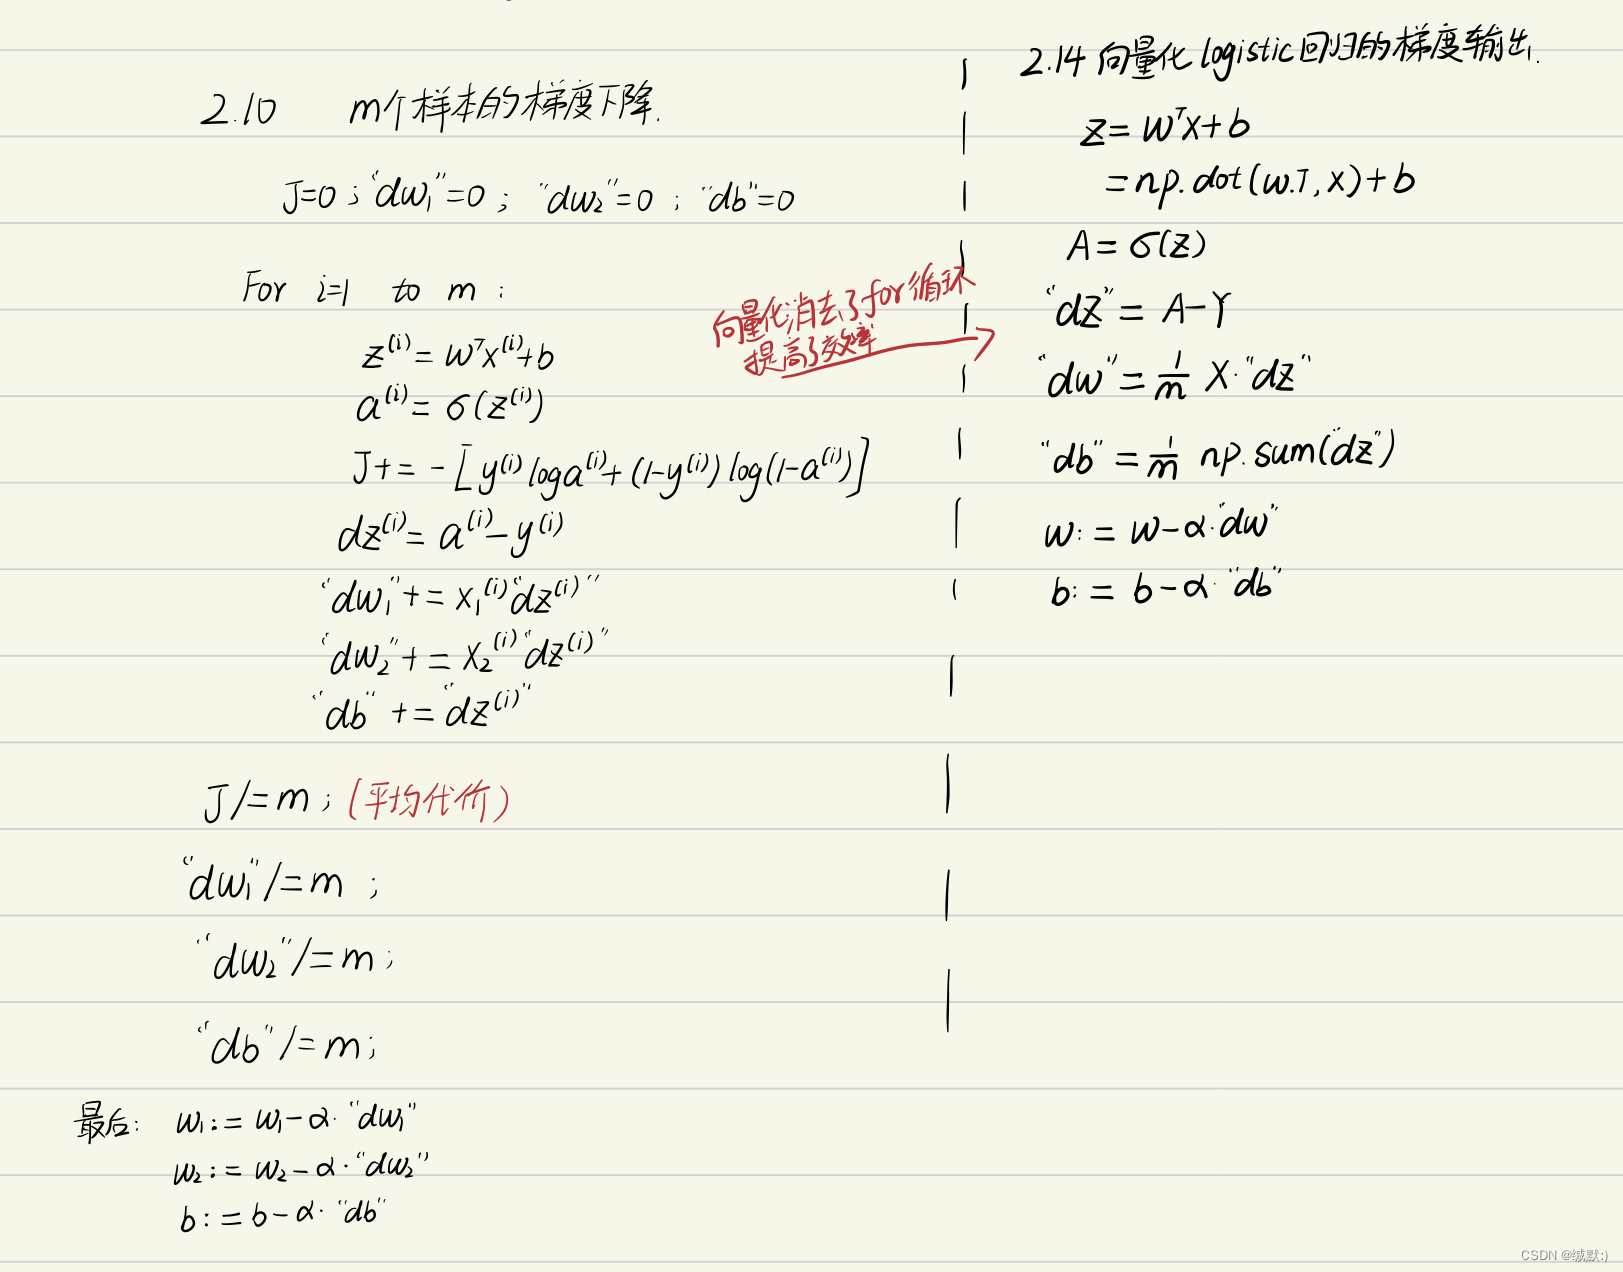 2.10 m个样本的梯度下降.
J=0; "dw₁"=0; "dw₂"=0; "db"=0
For i=1 to m:
z⁽ⁱ⁾=wᵀx⁽ⁱ⁾+b
a⁽ⁱ⁾=σ(z⁽ⁱ⁾)
J+=-[y⁽ⁱ⁾loga⁽ⁱ⁾+(1-y⁽ⁱ⁾)log(1-a⁽ⁱ⁾)]
dz⁽ⁱ⁾=a⁽ⁱ⁾-y⁽ⁱ⁾
"dw₁"+=x₁⁽ⁱ⁾"dz⁽ⁱ⁾"
"dw₂"+=x₂⁽ⁱ⁾"dz⁽ⁱ⁾"
"db"+="dz⁽ⁱ⁾"
J/=m;(平均代价)
"dw₁"/=m;
"dw₂"/=m;
"db"/=m;
最后: w₁:=w₁-α·"dw₁"
w₂:=w₂-α·"dw₂"
b:=b-α·"db"
向量化消去了for循环
提高了效率
2.14 向量化logistic回归的梯度输出.
z=wᵀx+b
=np.dot(w.T,x)+b
A=σ(z)
"dz"=A-Y
"dw"=1/m X·"dz"
"db"=1/m np.sum("dz")
w:=w-α·"dw"
b:=b-α·"db"
CSDN @缄默:)